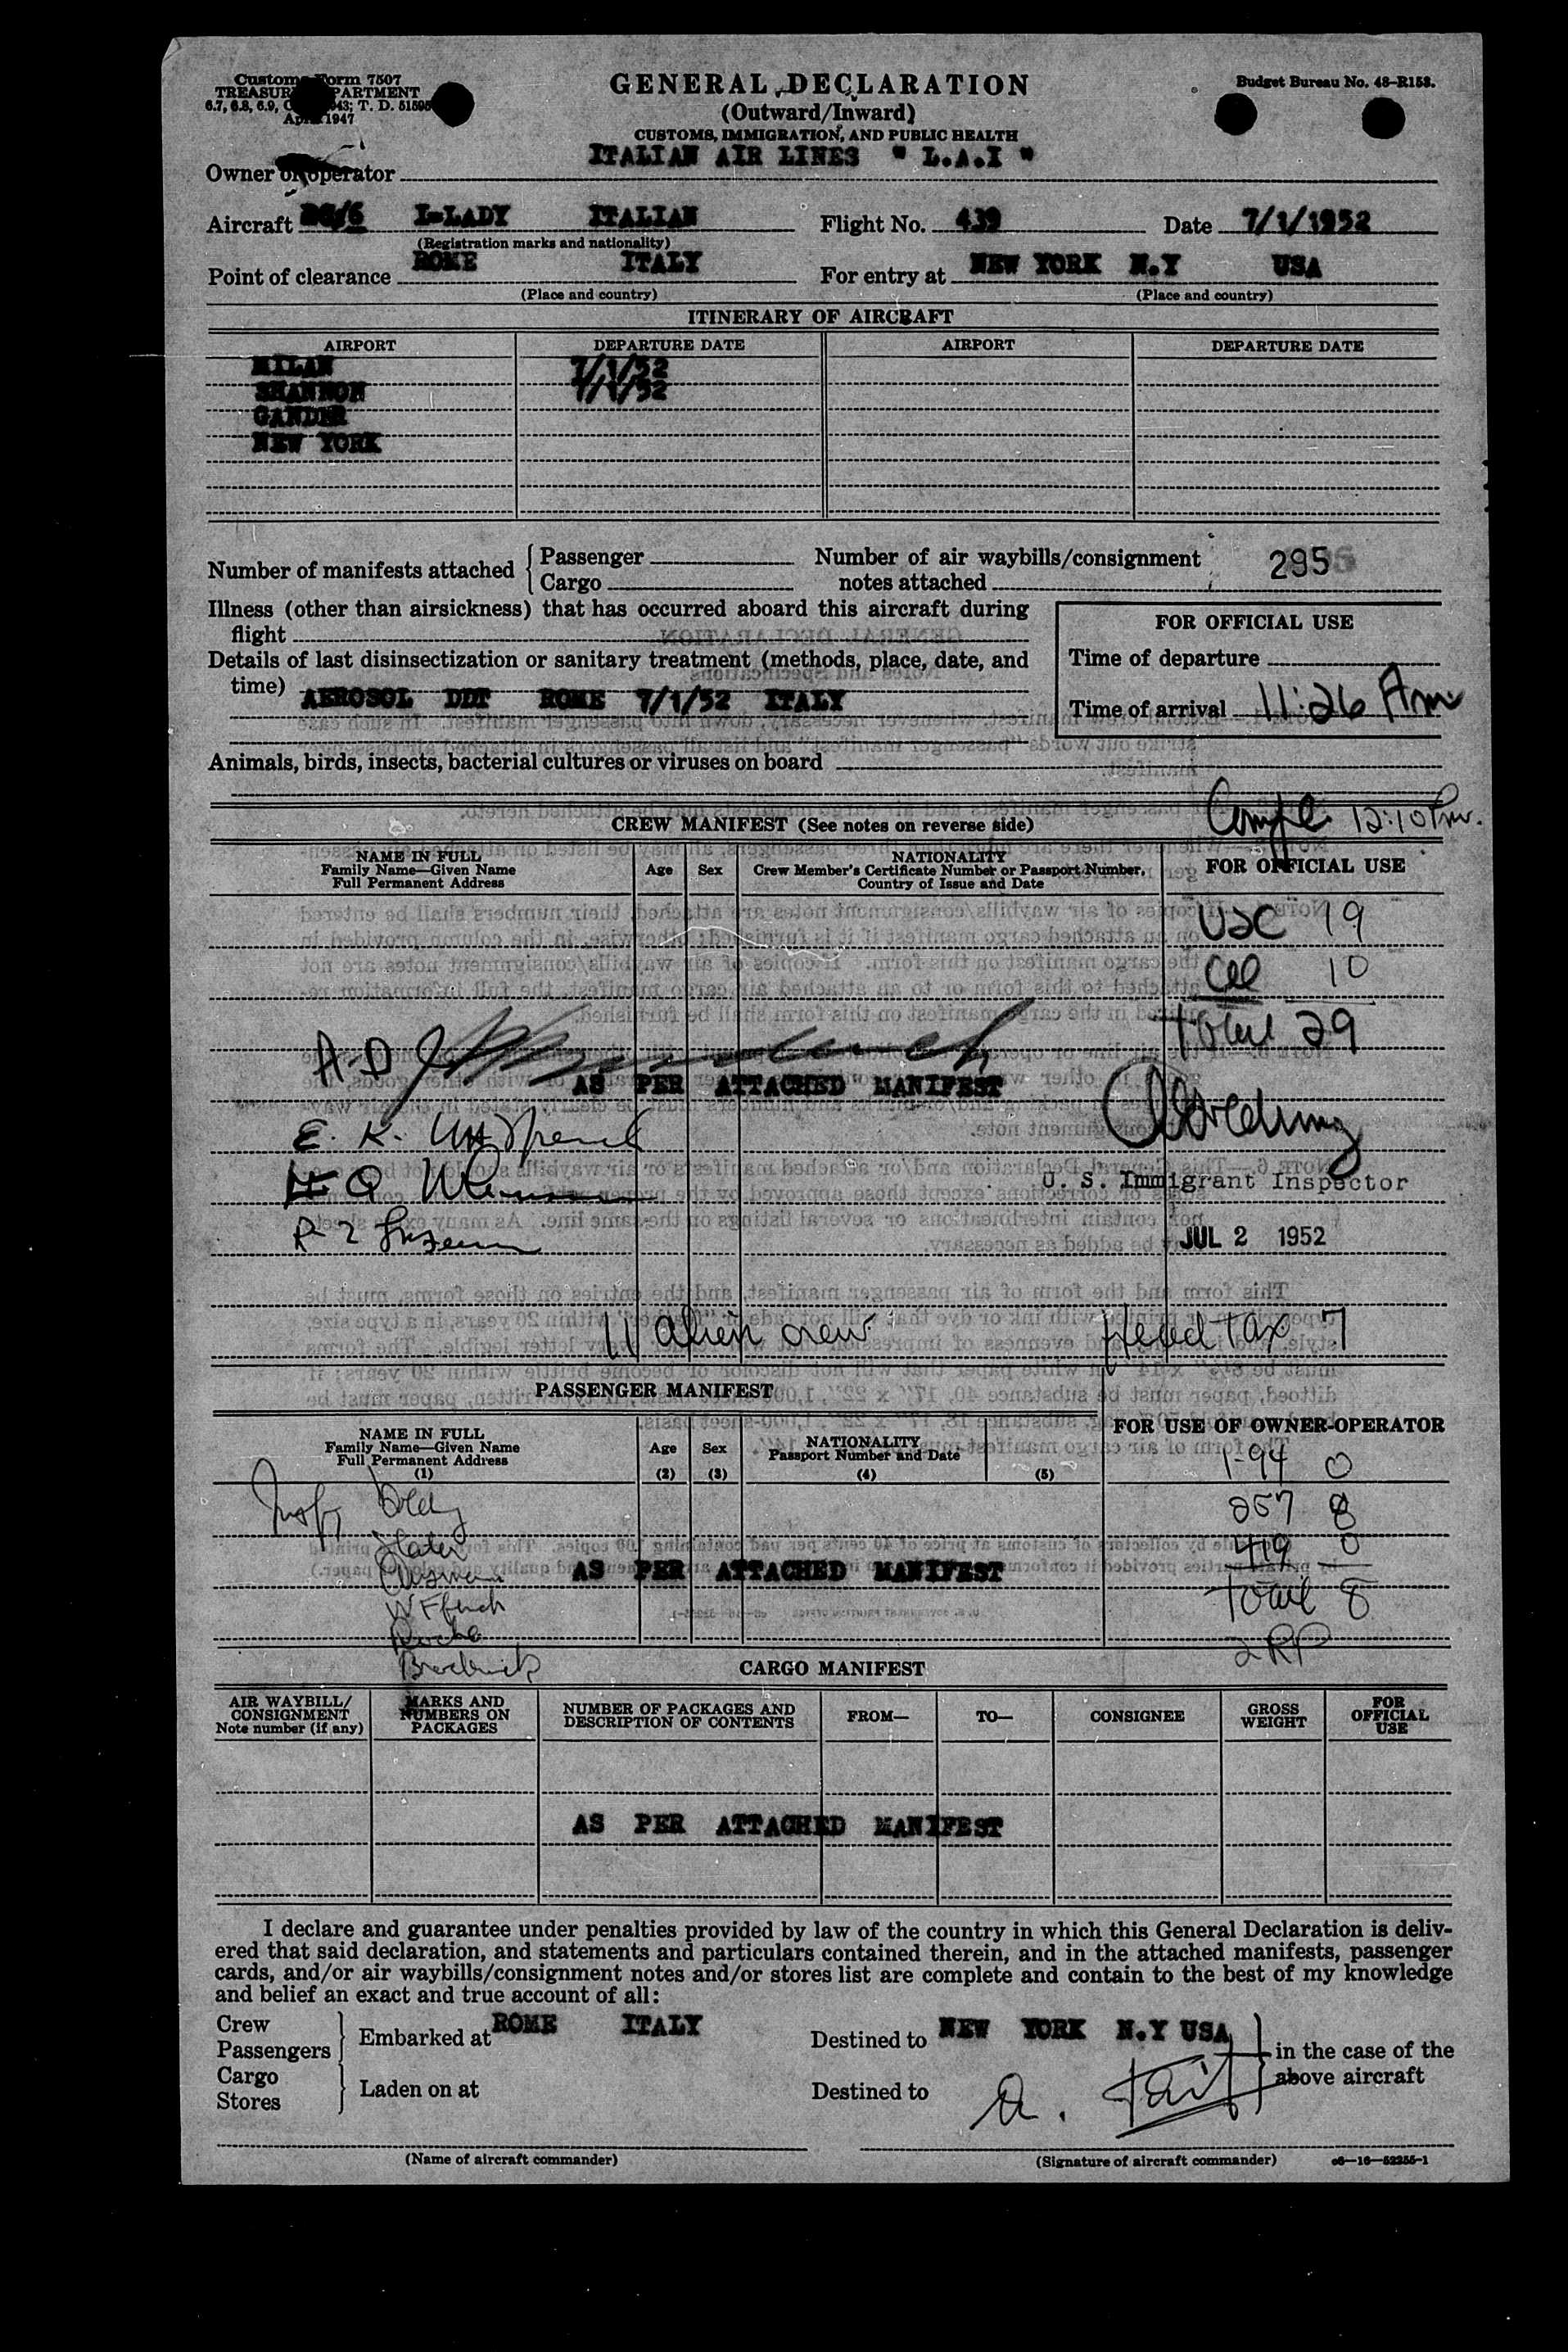 Customs Form 7507
TREASURY DEPARTMENT
6.7, 6.8, 6.9, 43; T. D. 51595
April 1947
GENERAL DECLARATION
(Outward/Inward)
CUSTOMS, IMMIGRATION, AND PUBLIC HEALTH
Budget Bureau No. 48-R158.
Owner or operator ITALIAN AIR LINES " L.A.I "
Aircraft DC/6 I-LADY ITALIAN Flight No. 439 Date 7/1/1952
(Registration marks and nationality)
Point of clearance ROME ITALY For entry at NEW YORK N.Y USA
(Place and country) (Place and country)
ITINERARY OF AIRCRAFT
AIRPORT DEPARTURE DATE AIRPORT DEPARTURE DATE
MILAN 7/1/52
SHANNON 7/1/52
GANDER
NEW YORK
Number of manifests attached { Passenger Number of air waybills/consignment 295
Cargo notes attached
Illness (other than airsickness) that has occurred aboard this aircraft during
flight
FOR OFFICIAL USE
Details of last disinsectization or sanitary treatment (methods, place, date, and
time) AEROSOL DDT ROME 7/1/52 ITALY
Time of departure
Time of arrival 11:26 Am
Animals, birds, insects, bacterial cultures or viruses on board
CREW MANIFEST (See notes on reverse side)
Compl. 12:10 Pm.
NAME IN FULL
Family Name—Given Name
Full Permanent Address
Age Sex
NATIONALITY
Crew Member's Certificate Number or Passport Number,
Country of Issue and Date
FOR OFFICIAL USE
USC 19
10
Total 29
AS PER ATTACHED MANIFEST
U. S. Immigrant Inspector
JUL 2 1952
11 Alien crew Head Tax 7
PASSENGER MANIFEST
NAME IN FULL
Family Name—Given Name
Full Permanent Address
(1)
Age
(2)
Sex
(3)
NATIONALITY
Passport Number and Date
(4) (5)
FOR USE OF OWNER-OPERATOR
I-94 0
257 8
419 0
AS PER ATTACHED MANIFEST
Total 8
2 RP
Roche
Broderick
CARGO MANIFEST
AIR WAYBILL/
CONSIGNMENT
Note number (if any)
MARKS AND
NUMBERS ON
PACKAGES
NUMBER OF PACKAGES AND
DESCRIPTION OF CONTENTS
FROM—
TO—
CONSIGNEE
GROSS
WEIGHT
FOR
OFFICIAL
USE
AS PER ATTACHED MANIFEST
I declare and guarantee under penalties provided by law of the country in which this General Declaration is deliv-
ered that said declaration, and statements and particulars contained therein, and in the attached manifests, passenger
cards, and/or air waybills/consignment notes and/or stores list are complete and contain to the best of my knowledge
and belief an exact and true account of all:
Crew
Passengers } Embarked at ROME ITALY Destined to NEW YORK N.Y USA
in the case of the
above aircraft
Cargo
Stores } Laden on at Destined to
(Name of aircraft commander) (Signature of aircraft commander) c6—16—52255-1